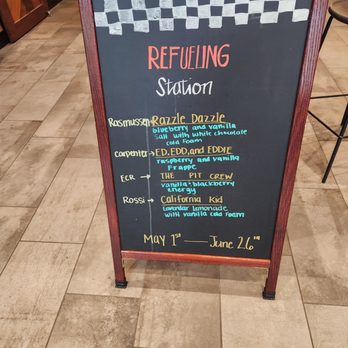 REFUELING
Station
Rasmussen→ Razzle Dazzle
blueberry and vanilla
Salt with white chocolate
cold Foam
Carpenter→ ED, EDD, and EDDIE
raspberry and vanilla
Frappe
ECR → THE PIT CREW
vanilla + blackberry
energy
Rossi → California Kid
lavendar lemonade
with vanilla cold Foam
May 1st — June 26th